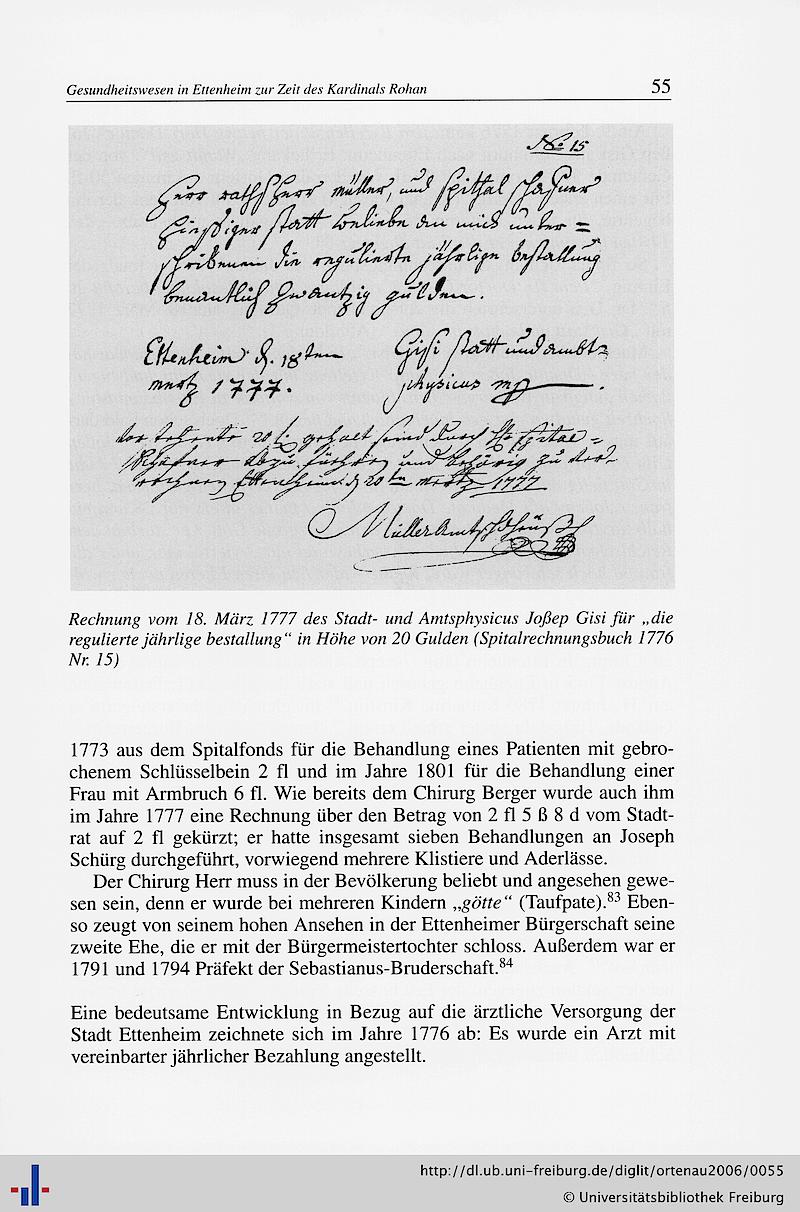 Gesundheitswesen in Ettenheim zur Zeit des Kardinals Rohan 55
No 15
Herr rathsHerr müller, und spithal schafner
hiesiger statt beliebe an mich unter =
schribenen die regulierte jährlige bestallung
benantlich zwantzig gulden.
Ettenheim d. 18ten Gisi statt und ambt=
mertz 1777. physicus mp.
20 f. gehalt seind durch H. spital=
schafner und behörig zu ver=
rechnen Ettenheim d. 20ten mertz 1777
Müller
Rechnung vom 18. März 1777 des Stadt- und Amtsphysicus Joßep Gisi für „die
regulierte jährlige bestallung“ in Höhe von 20 Gulden (Spitalrechnungsbuch 1776
Nr. 15)
1773 aus dem Spitalfonds für die Behandlung eines Patienten mit gebro-
chenem Schlüsselbein 2 fl und im Jahre 1801 für die Behandlung einer
Frau mit Armbruch 6 fl. Wie bereits dem Chirurg Berger wurde auch ihm
im Jahre 1777 eine Rechnung über den Betrag von 2 fl 5 ß 8 d vom Stadt-
rat auf 2 fl gekürzt; er hatte insgesamt sieben Behandlungen an Joseph
Schürg durchgeführt, vorwiegend mehrere Klistiere und Aderlässe.
Der Chirurg Herr muss in der Bevölkerung beliebt und angesehen gewe-
sen sein, denn er wurde bei mehreren Kindern „götte“ (Taufpate).83 Eben-
so zeugt von seinem hohen Ansehen in der Ettenheimer Bürgerschaft seine
zweite Ehe, die er mit der Bürgermeistertochter schloss. Außerdem war er
1791 und 1794 Präfekt der Sebastianus-Bruderschaft.84
Eine bedeutsame Entwicklung in Bezug auf die ärztliche Versorgung der
Stadt Ettenheim zeichnete sich im Jahre 1776 ab: Es wurde ein Arzt mit
vereinbarter jährlicher Bezahlung angestellt.
http://dl.ub.uni-freiburg.de/diglit/ortenau2006/0055
© Universitätsbibliothek Freiburg